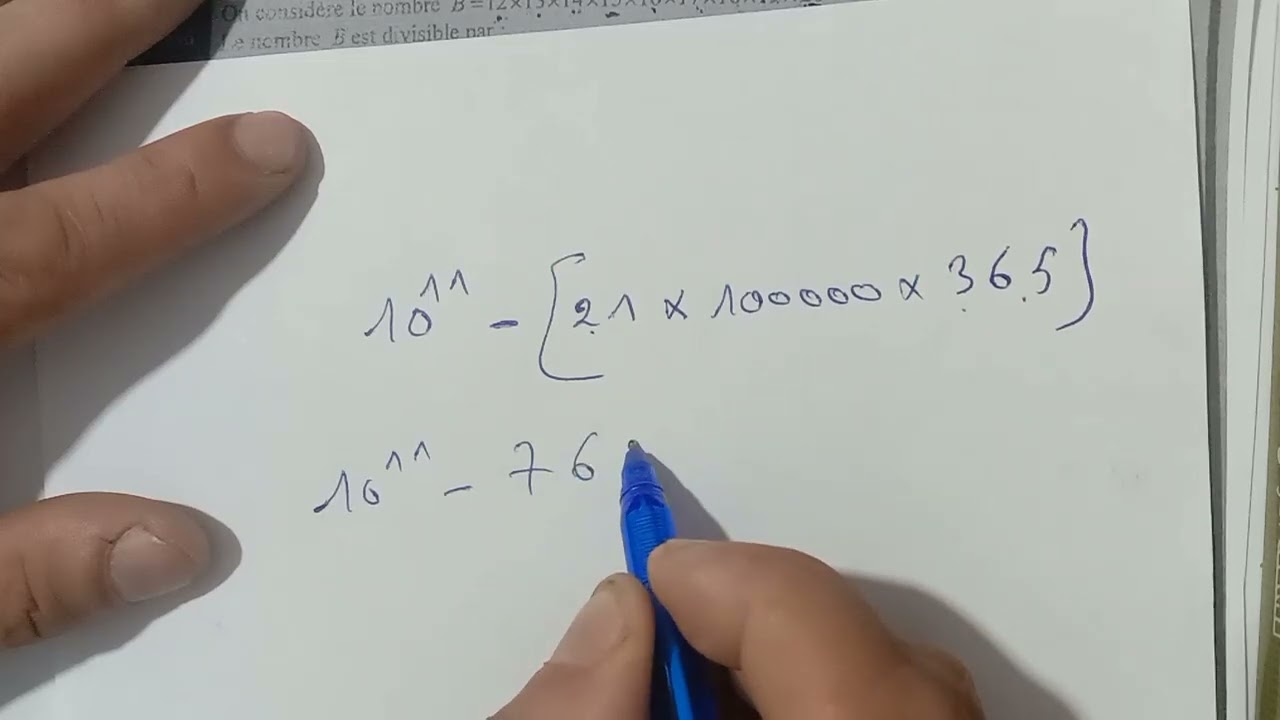 On considère le nombre B=12×13×14×15×16×17×18×
Le nombre B est divisible par :
10¹¹ - [21 × 100000 × 365]
10¹¹ - 76